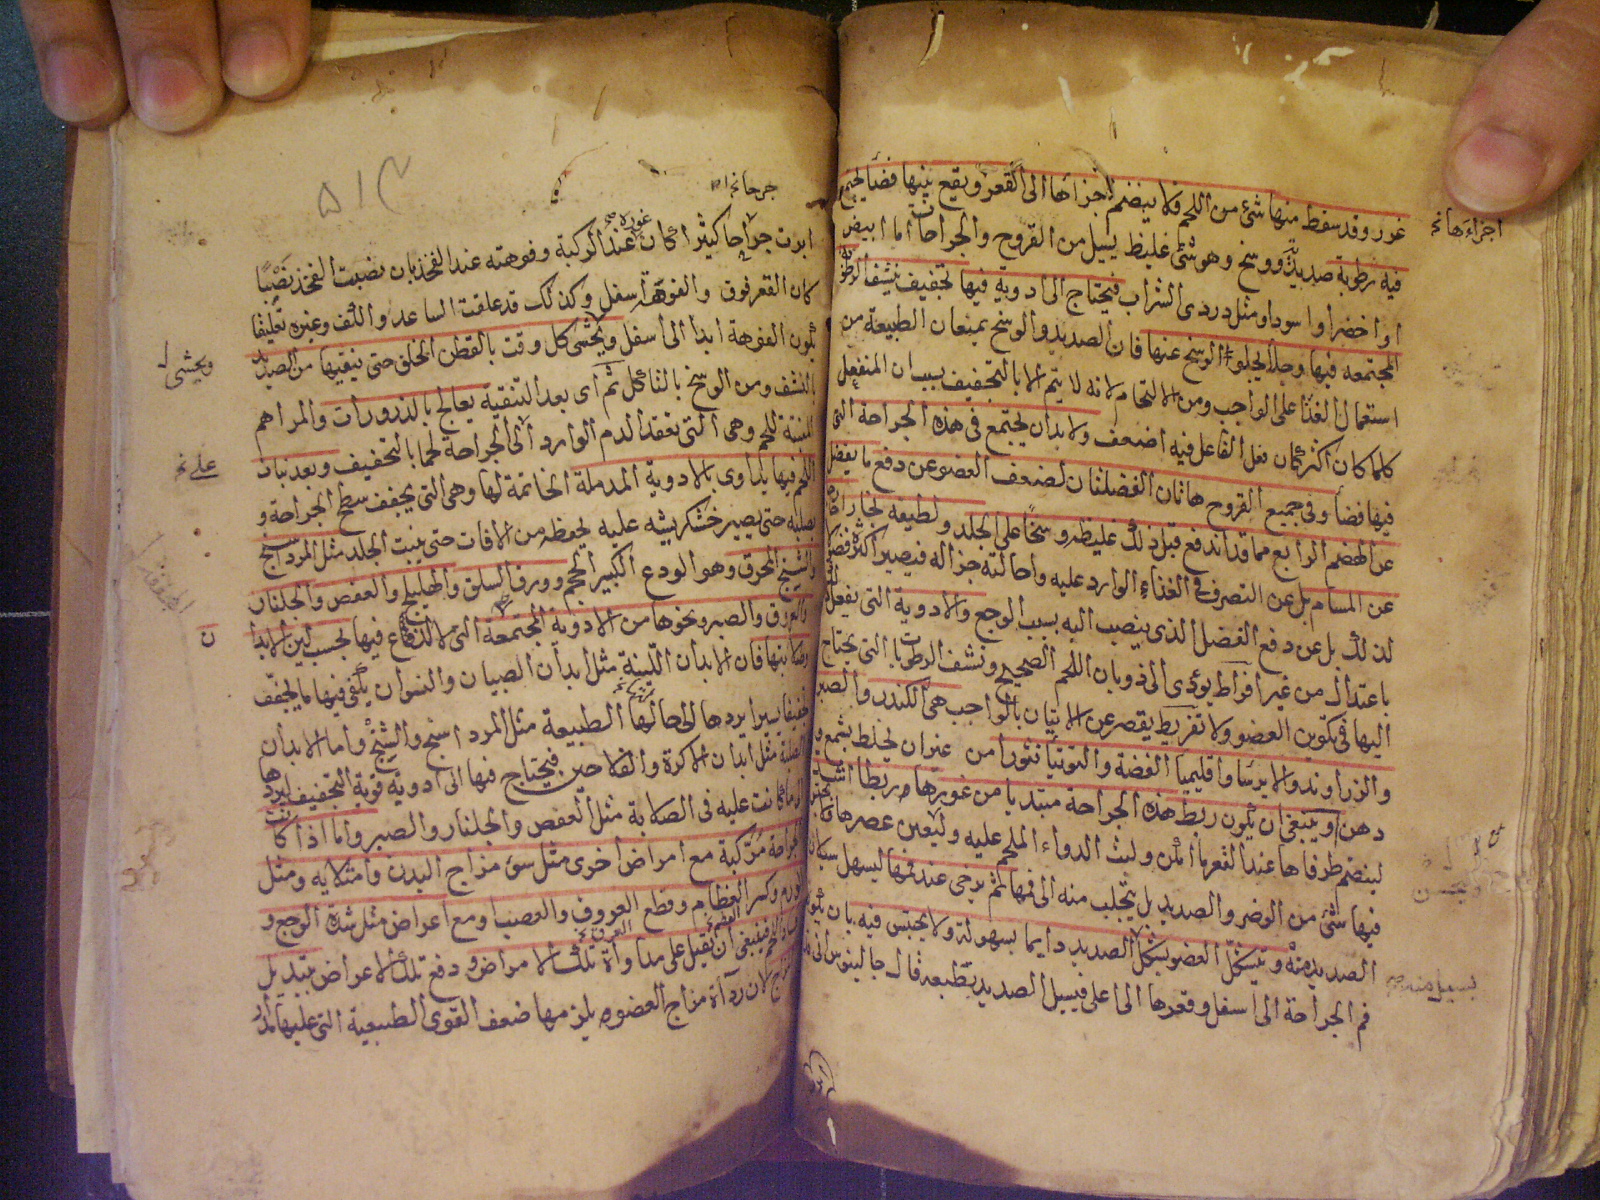 غور وقد سقط منها شئ من اللحم فلا ينضم اجزاءها الى القعر ويقع بينها فضا يجتمع
اجزاءها نخ
فيه رطوبة صديدية ووسخ وهو شئ غليظ يسيل من القروح والجراحات اما ابيض
او اخضر او اسود او مثل دردى الشراب فيحتاج الى ادوية فيها تجفيف ينشف الرطوبة
المجتمعه فيها وجلا يجلو الوسخ عنها فان الصديد والوسخ يمنعان الطبيعة من
استعمال الغذا على الواجب ومن الالتحام لانه لا يتم الا بالتجفيف بسبب ان المنفعل
كلما كان اكثر كان فعل الفاعل فيه اضعف ولا بد ان يجتمع فى هذه الجراحة التى
فيها فضا وفى جميع القروح هاتان الفضلتان لضعف العضو عن دفع ما يفضل
عن الهضم الرابع مما قد اندفع قبل ذلك غليظه وسخا على الجلد ولطيفه بخارا
عن المسام بل عن التصرف فى الغذاء الوارد عليه واحالته جزا له فيصير اكثره فضلا
لذلك بل عن دفع الفضل الذى ينصب اليه بسبب الوجع والادوية التى يفعل
باعتدال من غير افراط يؤدى الى ذوبان اللحم الصحيح ونشف الرطوبات التى يحتاج
اليها فى تكوين العضو ولا تفريط يقصر عن الاتيان بالواجب هى الكندر والصبر
والزراوند والايرسا واقليميا الفضة والتوتيا نثورا من غير ان يخلط بشمع و
دهن وينبغى ان يكون ربط هذه الجراحة مبتديا من غورها ربطا اشد
لينضم طرفاها عند القعر ما امكن ولبث الدواء الملحم عليه وليعين عصرها
فيها شئ من الوضر والصديد بل يتجلب منه الى فمها ثم يرخى عند فمها ليسهل سيلان
الصديد منه ويتشكل العضو بشكل يسيل الصديد دايما بسهولة ولا يحتبس فيه بان يكون
يسيل منه
فم الجراحة الى اسفل وقعرها الى اعلى فيسيل الصديد بطبعه قال جالينوس انى قد
ابرت جراحا كثيرا كان غوره عند الركبة وفوهته عند الفخذ بان نصبت الفخذ نصبا
كان القعر فوق والفوهة اسفل وكذلك قد علقت الساعد والكف وغيره تعليقا
يكون الفوهة ابدا الى اسفل ويحشى كل وقت بالقطن الخلق حتى ينقيها من الصديد
ويحشى
بالنشف ومن الوسخ بالتاكل ثم اى بعد التنقية يعالج بالذرورات والمراهم
المنبتة للحم وهى التى تعقد الدم الوارد الى الجراحة لحما بالتجفيف وبعد نبات
اللحم فيها يداوى بالادوية المدملة الخاتمة لها وهى التى يجفف سطح الجراحة و
عليه نخ
يصلبه حتى يصير خشكريشه عليه يحفظه من الافات حتى ينبت الجلد مثل المرداسنج
والشنج المحرق وهو الودع الكبير الحجم وورق السلق والهليلج والعفص والجلنار
والعروق والصبر ونحوها من الادوية المجففة التى لا لذاع فيها بحسب لين الابدان
وصلابتها فان الابدان اللينة مثل ابدان الصبيان والنسوان يكفى فيها ما يجفف
تجفيفا يسيرا يردها الى حالها الطبيعة مثل المرداسنج والشنج واما الابدان
الصلبة مثل ابدان الاكرة والفلاحين فيحتاج فيها الى ادوية قوية التجفيف ليردها
الى ما كانت عليه فى الصلابة مثل العفص والجلنار والصبر واما اذا كانت
الجراحة مركبة مع امراض اخرى مثل سوء مزاج البدن وامتلايه ومثل
الورم وكسر العظام وقطع العروق والعصب او مع اعراض مثل شدة الوجع و
فينبغى ان يقبل على مداواة تلك الامراض ودفع تلك الاعراض بتبديل
المزاج لان رداءة مزاج العضو يلزمها ضعف القوى الطبيعية التى عليها